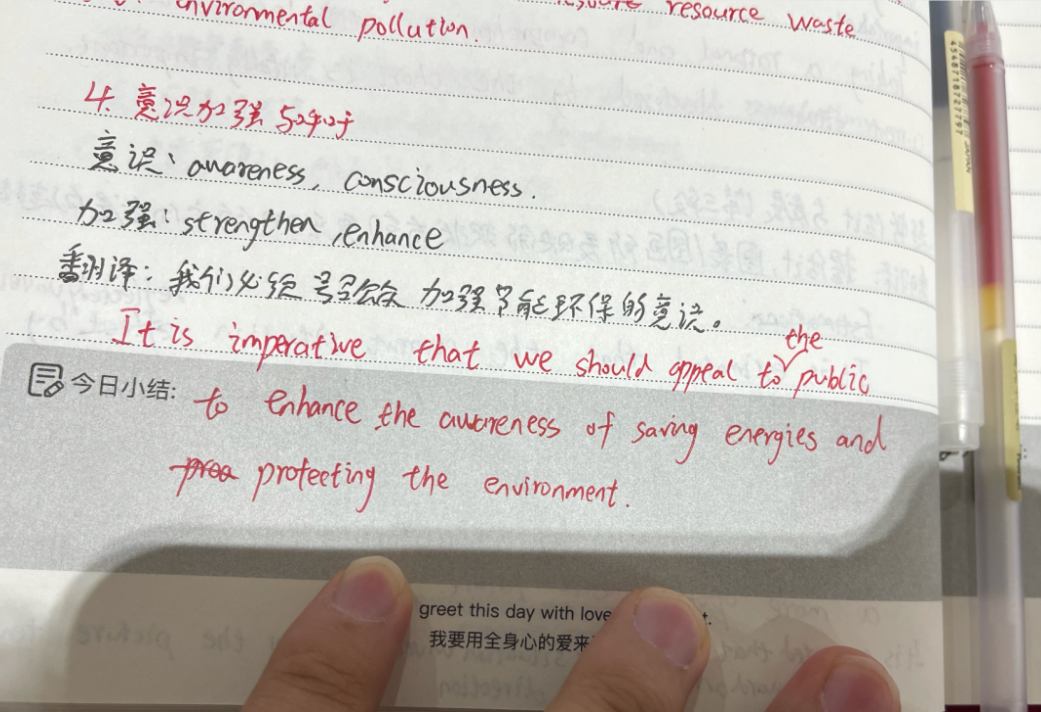 environmental pollution.
resource waste
4. 意识加强句
意识：awareness, consciousness.
加强：strengthen, enhance
翻译：我们必须号召 加强节能环保的意识。
It is imperative that we should appeal to the public
今日小结:
to enhance the awareness of saving energies and
protecting the environment.
greet this day with love
我要用全身心的爱来
4548718727797